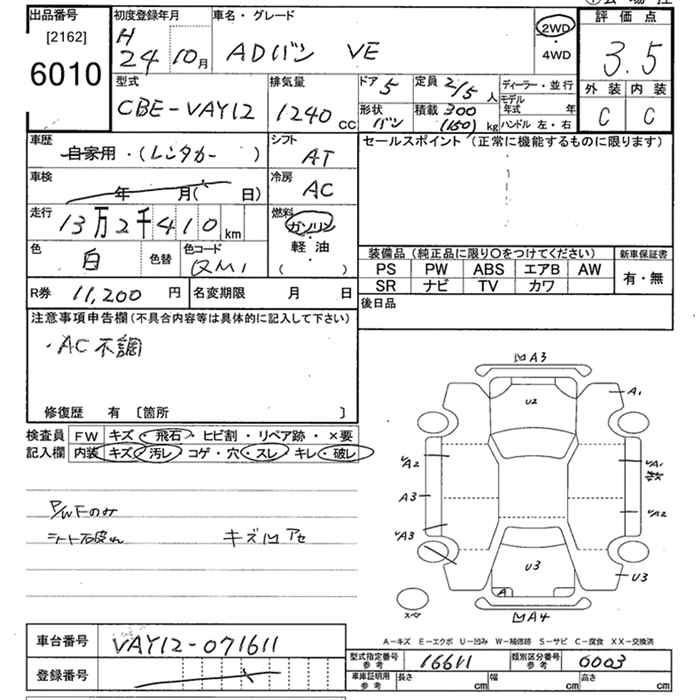 出品番号 初度登録年月 車名・グレード 評価点
[2162] H 2WD
6010 24年 10月 ADバン VE ・ 3.5
4WD
型式 排気量 ドア 5 定員 2/5人 ディーラー・並行 外装 内装
CBE-VAY12 1240cc 形状 バン 積載 300(150)kg モデル年式 年 C C
ハンドル 左・右
車歴 シフト セールスポイント (正常に機能するものに限ります)
自家用・(レンタカー) AT
車検 冷房
年 月( 日) AC
走行 燃料
13万2千410km ガソリン
色 色替 色コード 軽・油 装備品 (純正品に限り○をつけてください) 新車保証書
白 QM1 ( ) PS PW ABS エアB AW 有・無
R券 11,200円 名変期限 月 日 SR ナビ TV カワ
注意事項申告欄 (不具合内容等は具体的に記入して下さい) 後日品
・AC不調
修復歴 有 〔箇所 〕
検査員 FW キズ・飛石・ヒビ割・リペア跡・×要
記入欄 内装 キズ・汚レ コゲ・穴・スレ・キレ・破レ
P/WFのみ
シート破れ キズ凹アセ
凹A3
U2 A1
A2 A1
A3 A2
A3
U3 U3
A
スペア 凹A4
A－キズ E－エクボ U－凹み W－補修跡 S－サビ C－腐食 XX－交換済
車台番号 VAY12-071611 型式指定番号 参考 16611 類別区分番号 参考 0003
登録番号 車庫証明用 参考 長さ cm 幅 cm 高さ cm